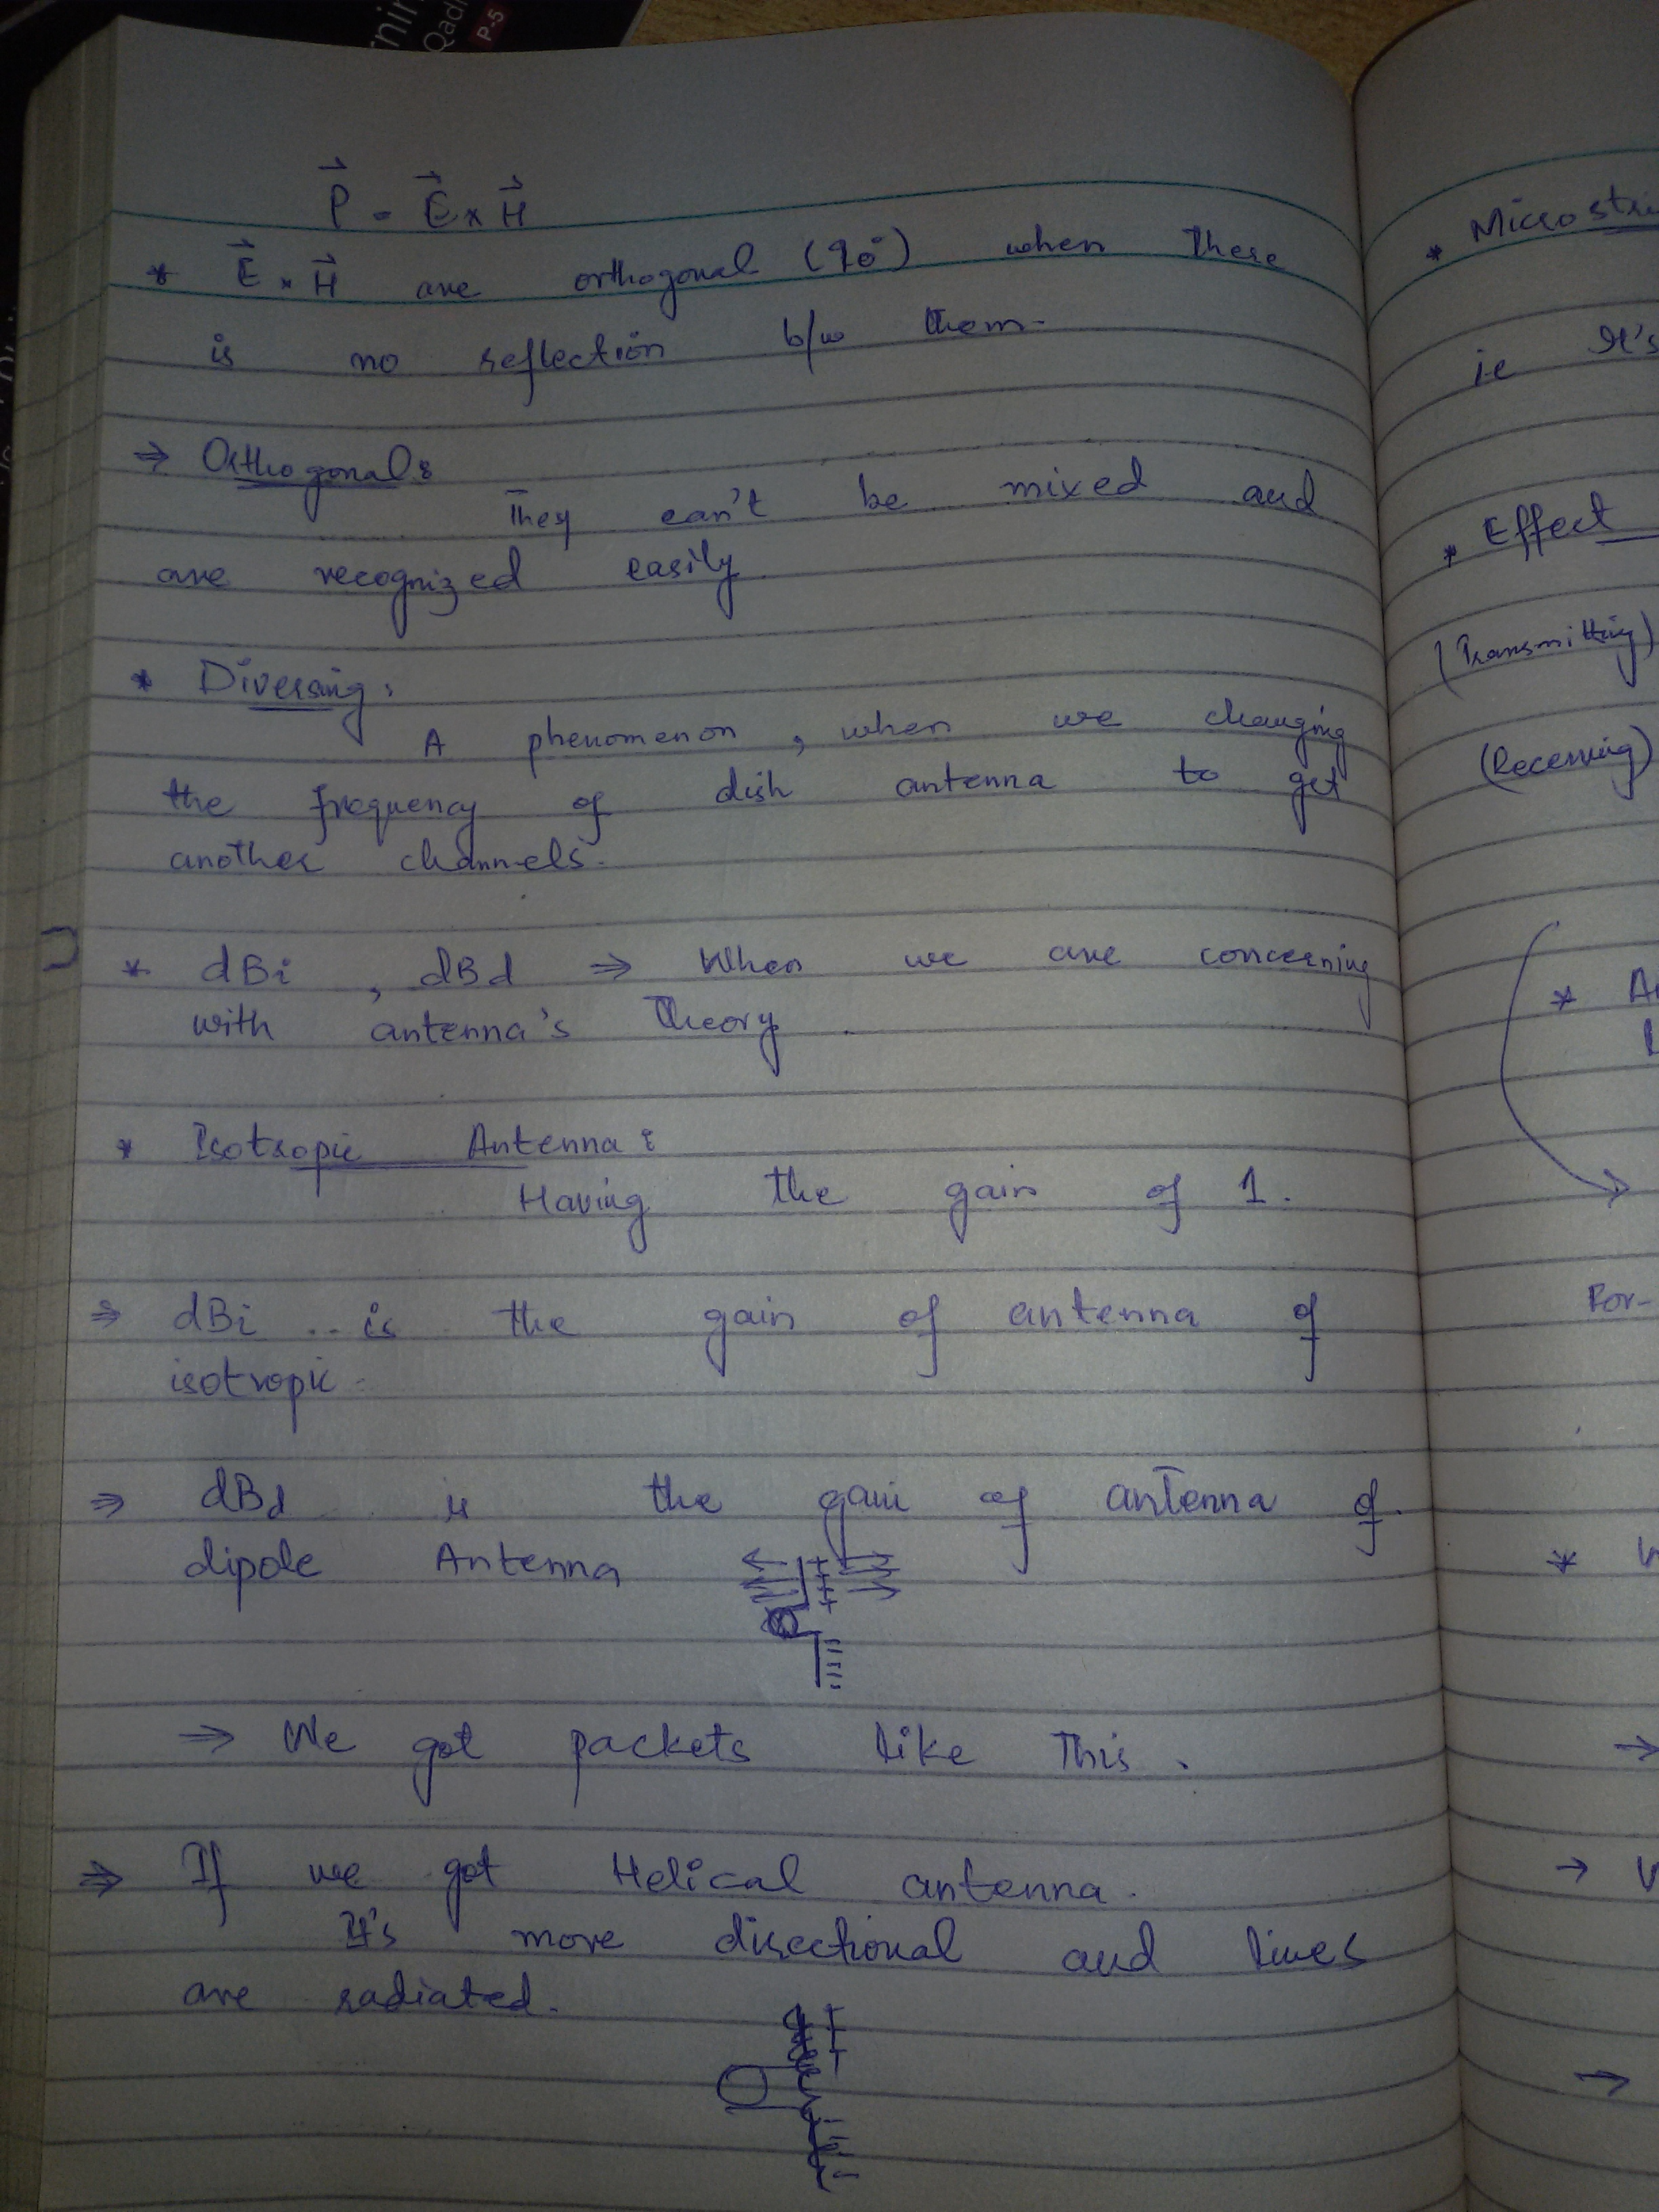 rnin
Qadi
P-5
P⃗ = E⃗ x H⃗
* E⃗ x H⃗ are orthogonal (90°) when there
is no reflection b/w them.
⇒ Orthogonal:
They can't be mixed and
are recognized easily
* Diversing:
A phenomenon, when we changing
the frequency of dish antenna to get
another channels.
* dBi, dBd ⇒ When we are concerning
with antenna's Theory.
* Isotropic Antenna:
Having the gain of 1.
⇒ dBi .. is the gain of antenna of
isotropic.
⇒ dBd is the gain of antenna of.
dipole Antenna
+ + + +
⇒ We got packets like This.
⇒ If we got Helical antenna.
It's more directional and lines
are radiated.
* Microstri
i.e It's
* Effect
(Transmitting)
(Receiving)
* A
For-
*
→
→
→